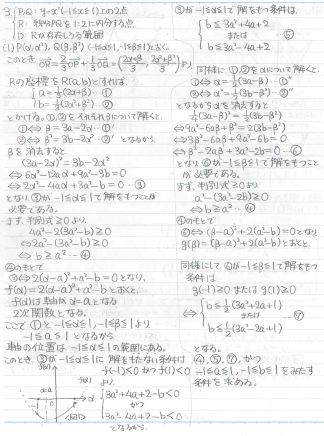 3. P,Q : y=x²(-1≤x≤1)上の2点
R : 線分PQを1:2に内分する点
D : Rが存在しうる範囲
(1) P(α,α²), Q(β,β²) (-1≤α≤1, -1≤β≤1)とおく
このとき、OR=2/3 OP+1/3 OQ=(2α+β/3, 2α²+β²/3)より、
Rの座標をR(a,b)とすれば、
a=1/3(2α+β) …①
b=1/3(2α²+β²) …②
とかける。①,②をそれぞれβについて解くと、
①⇔ β=3a-2α …①'
②⇔ β²=3b-2α² …②' となるから、
βを消去すると
(3a-2α)²=3b-2α²
⇔ 6α²-12aα+9a²-3b=0
⇔ 2α²-4aα+3a²-b=0 …③
となり③が-1≤α≤1で解をもつことが
必要である。
まず、判別式≥0より
4a²-2(3a²-b)≥0
⇔ 2a²-(3a²-b)≥0
⇔ b≥a² …④
④のもとで
③⇔ 2(α-a)²+a²-b=0となり、
f(α)=2(α-a)²+a²-bとおくと、
f(α)は軸がα=aとなる
2次関数となる。
ここで①と-1≤α≤1, -1≤β≤1より
-1≤a≤1となるから
軸の位置は-1≤α≤1の範囲にある。
このとき、③が-1≤α≤1に解をもたない条件は
f(-1)<0かつf(1)<0
より、
3a²+4a+2-b<0
かつ
3a²-4a+2-b<0
となるから、
③が-1≤α≤1で解をもつ条件は、
b≤3a²+4a+2
または …⑤
b≤3a²-4a+2
同様に①,②をαについて解くと、
①⇔ α=1/2(3a-β) …①''
②⇔ α²=1/2(3b-β²) …②''
となるからαを消去すると
1/4(3a-β)²=1/2(3b-β²)
⇔ 9a²-6aβ+β²=2(3b-β²)
⇔ 3β²-6aβ+9a²-6b=0
⇔ β²-2aβ+3a²-2b=0 …⑥
となり⑥が-1≤β≤1で解をもつことが
必要である。
まず、判別式≥0より
a²-(3a²-2b)≥0
⇔ b≥a² …④
④のもとで
⑥⇔ (β-a)²+2(a²-b)=0となり
g(β)=(β-a)²+2(a²-b)とおくと、
同様にして⑥が-1≤β≤1で解をもつ
条件は
g(-1)≥0またはg(1)≥0
⇔ b≤1/2(3a²+2a+1)
または …⑦
b≤1/2(3a²-2a+1)
となる。
④,⑤,⑦,かつ
-1≤a≤1, -1≤b≤1をみたす
条件を求める。